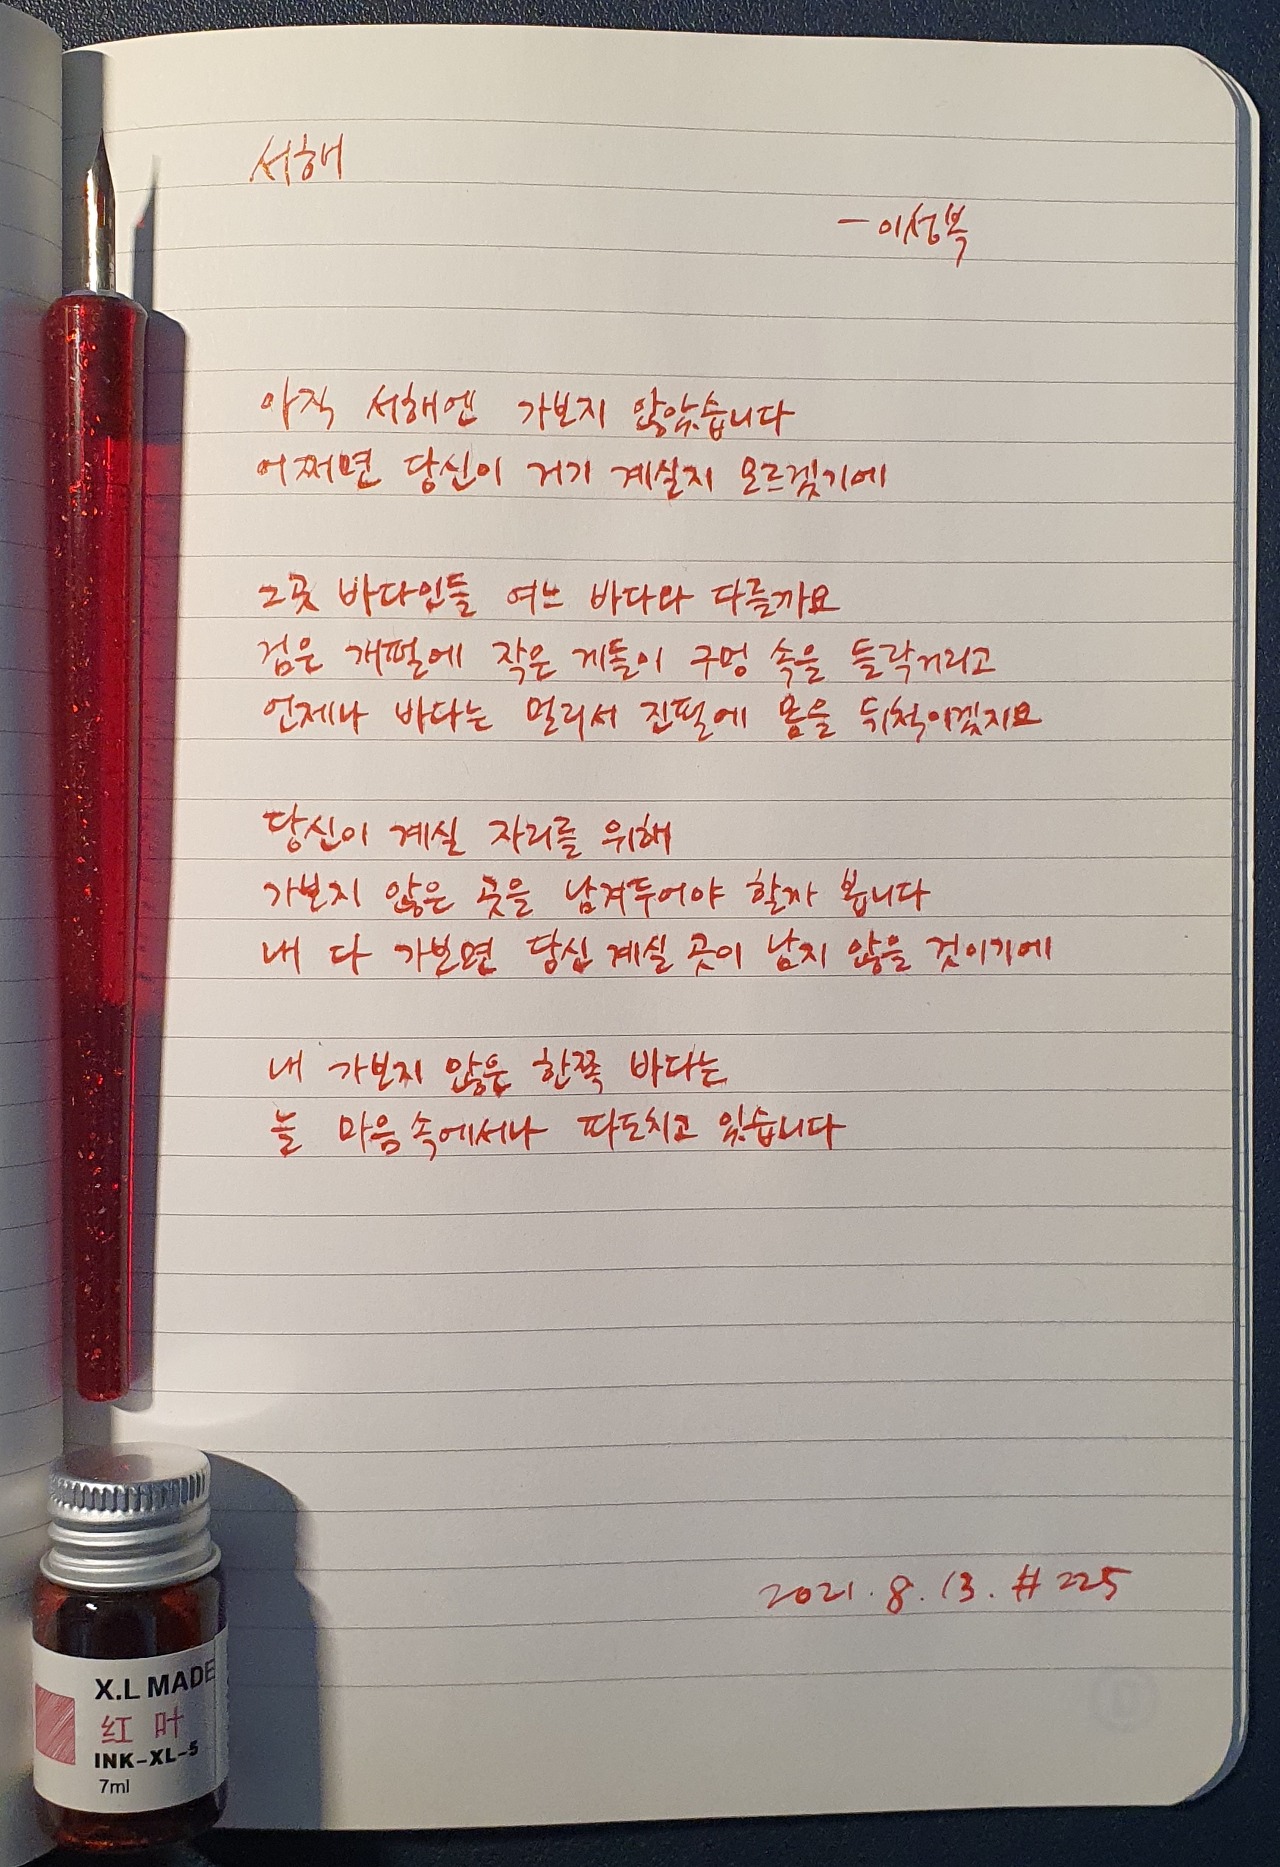 서해
- 이성복
아직 서해엔 가보지 않았습니다
어쩌면 당신이 거기 계실지 모르겠기에
그곳 바다인들 여느 바다와 다를까요
검은 개펄에 작은 게들이 구멍 속을 들락거리고
언제나 바다는 멀리서 진펄에 몸을 뒤척이겠지요
당신이 계실 자리를 위해
가보지 않은 곳을 남겨두어야 할까 봅니다
내 다 가보면 당신 계실 곳이 남지 않을 것이기에
내 가보지 않은 한쪽 바다는
늘 마음속에서나 파도치고 있습니다
2021. 8. 13. #225
X.L MADE
红 叶
INK-XL-5
7ml